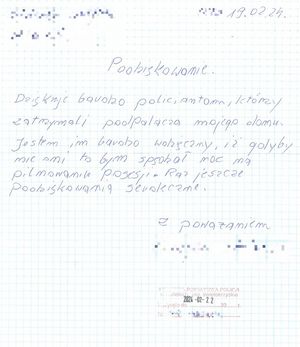 19.02.24.
Podziękowanie.
Dziękuję bardzo policjantom, którzy
zatrzymali podpalacza mojego domu.
Jestem im bardzo wdzięczny, iż gdyby
nie oni to bym spędzał noc na
pilnowaniu posesji. Raz jeszcze
podziękowania serdeczne.
Z poważaniem
POWIATOWA POLICJI
2024 -02- 22